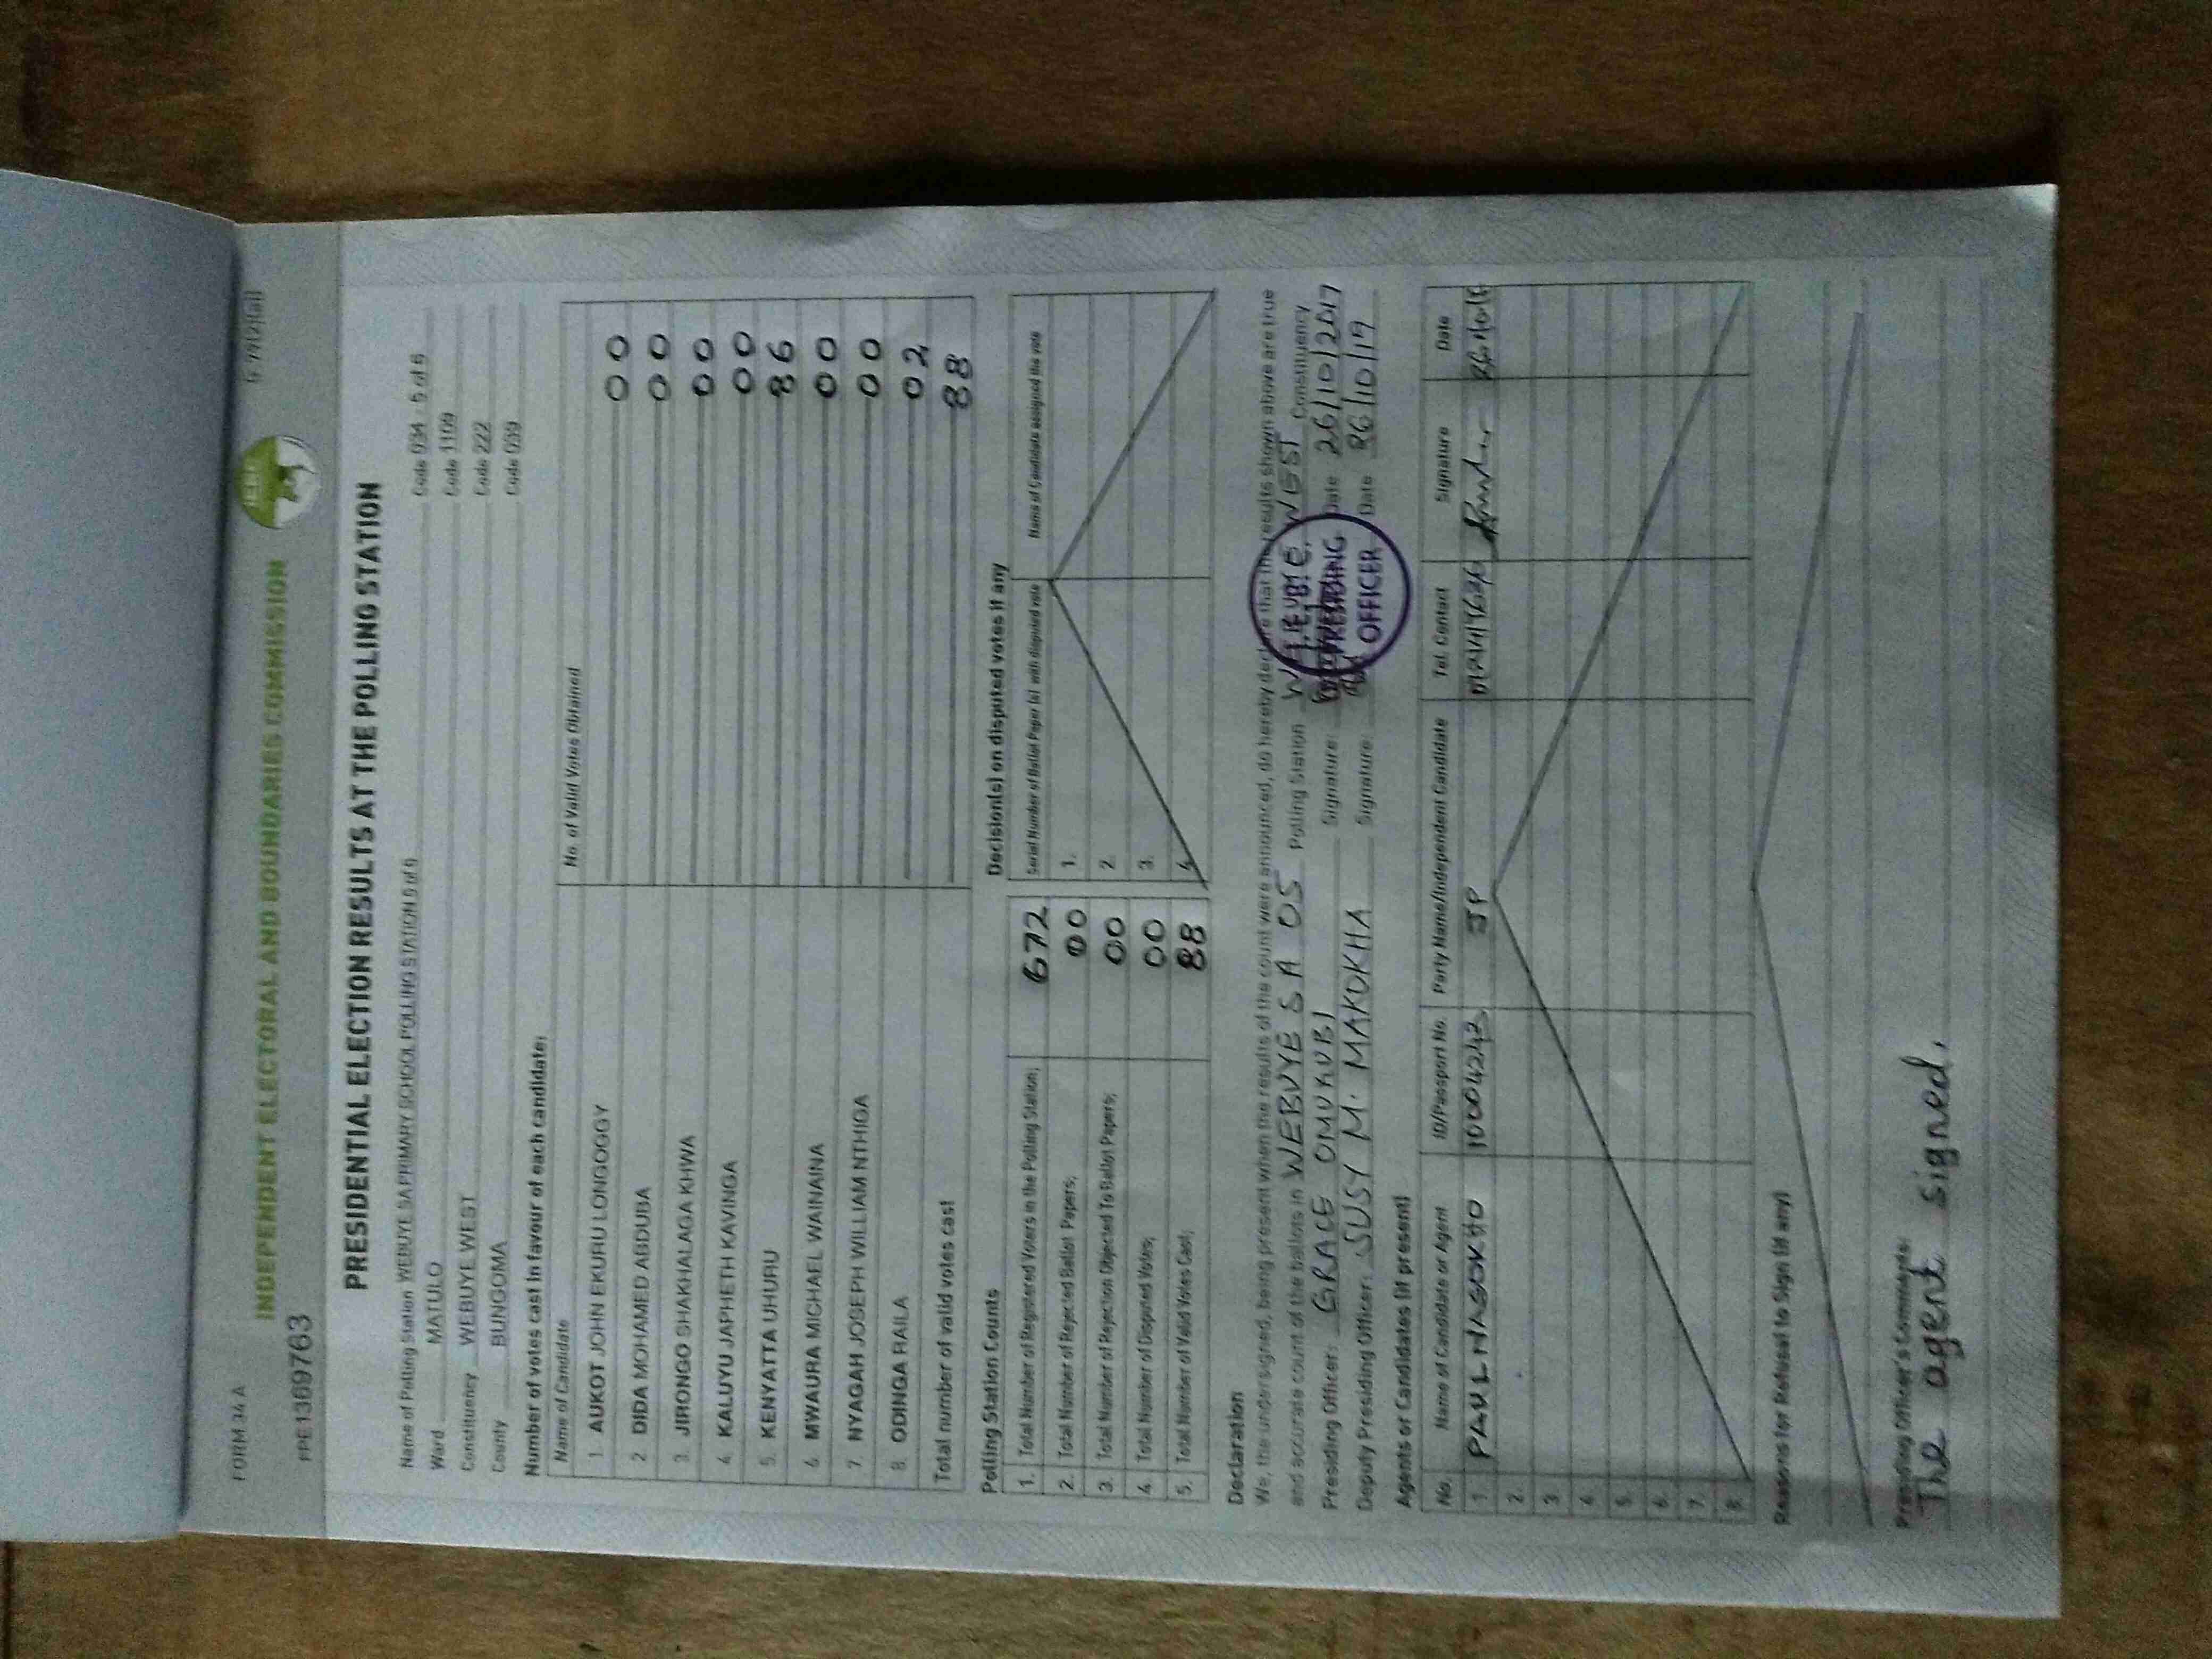 FORM 34 A
INDEPENDENT ELECTORAL AND BOUNDARIES COMMISSION
IEBC
PRESIDENTIAL ELECTION RESULTS AT THE POLLING STATION
Name of Polling Station WEBUYE SA PRIMARY SCHOOL POLLING STATION 5 of 6 Code 034 5 of 6
Ward MATULO Code 1109
Constituency WEBUYE WEST Code 222
County BUNGOMA Code 039
Number of votes cast in favour of each candidate:
Name of Candidate No. of Valid Votes Obtained
1. AUKOT JOHN EKURU LONGOGGY 00
2. DIDA MOHAMED ABDUBA 00
3. JIRONGO SHAKHALAGA KHWA 00
4. KALUYU JAPHETH KAVINGA 00
5. KENYATTA UHURU 86
6. MWAURA MICHAEL WAINAINA 00
7. NYAGAH JOSEPH WILLIAM NTHIGA 00
8. ODINGA RAILA 02
Total number of valid votes cast 88
Polling Station Counts
1. Total Number of Registered Voters in the Polling Station; 672
2. Total Number of Rejected Ballot Papers; 00
3. Total Number of Rejection Objected To Ballot Papers; 00
4. Total Number of Disputed Votes; 00
5. Total Number of Valid Votes Cast; 88
Decision(s) on disputed votes if any
Serial Number of Ballot Paper (s) with disputed vote Name of Candidate assigned the vote
1.
2.
3.
4.
Declaration
We, the undersigned, being present when the results of the count were announced, do hereby declare that the results shown above are true
and accurate count of the ballots in WEBUYE S A 05 Polling Station WEBUYE WEST Constituency
Presiding Officer: GRACE OMUKUBI Signature: Date 26/10/2017
Deputy Presiding Officer: SUSY M. MAKOKHA Signature: Date 26/10/17
PRESIDING
OFFICER
Agents or Candidates (if present)
No. Name of Candidate or Agent ID/Passport No. Party Name/Independent Candidate Tel. Contact Signature Date
1. PAUL NASOKHO 10004243 JP
2.
3.
4.
5.
6.
7.
8.
Reasons for Refusal to Sign (if any)
Presiding Officer's Comments:
The agent signed.